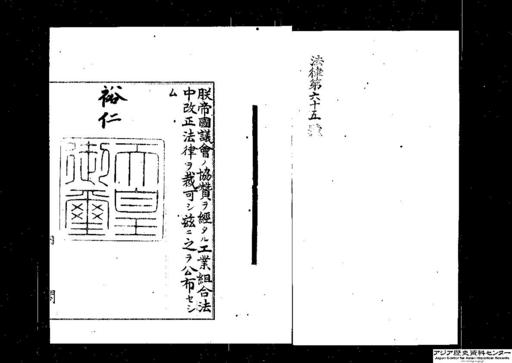 法律第六十五號
朕帝國議會ノ協贊ヲ經タル工業組合法
中改正法律ヲ裁可シ茲ニ之ヲ公布セシ
ム
裕仁
天皇御璽
閣
アジア歴史資料センター
Japan Center for Asian Historical Records